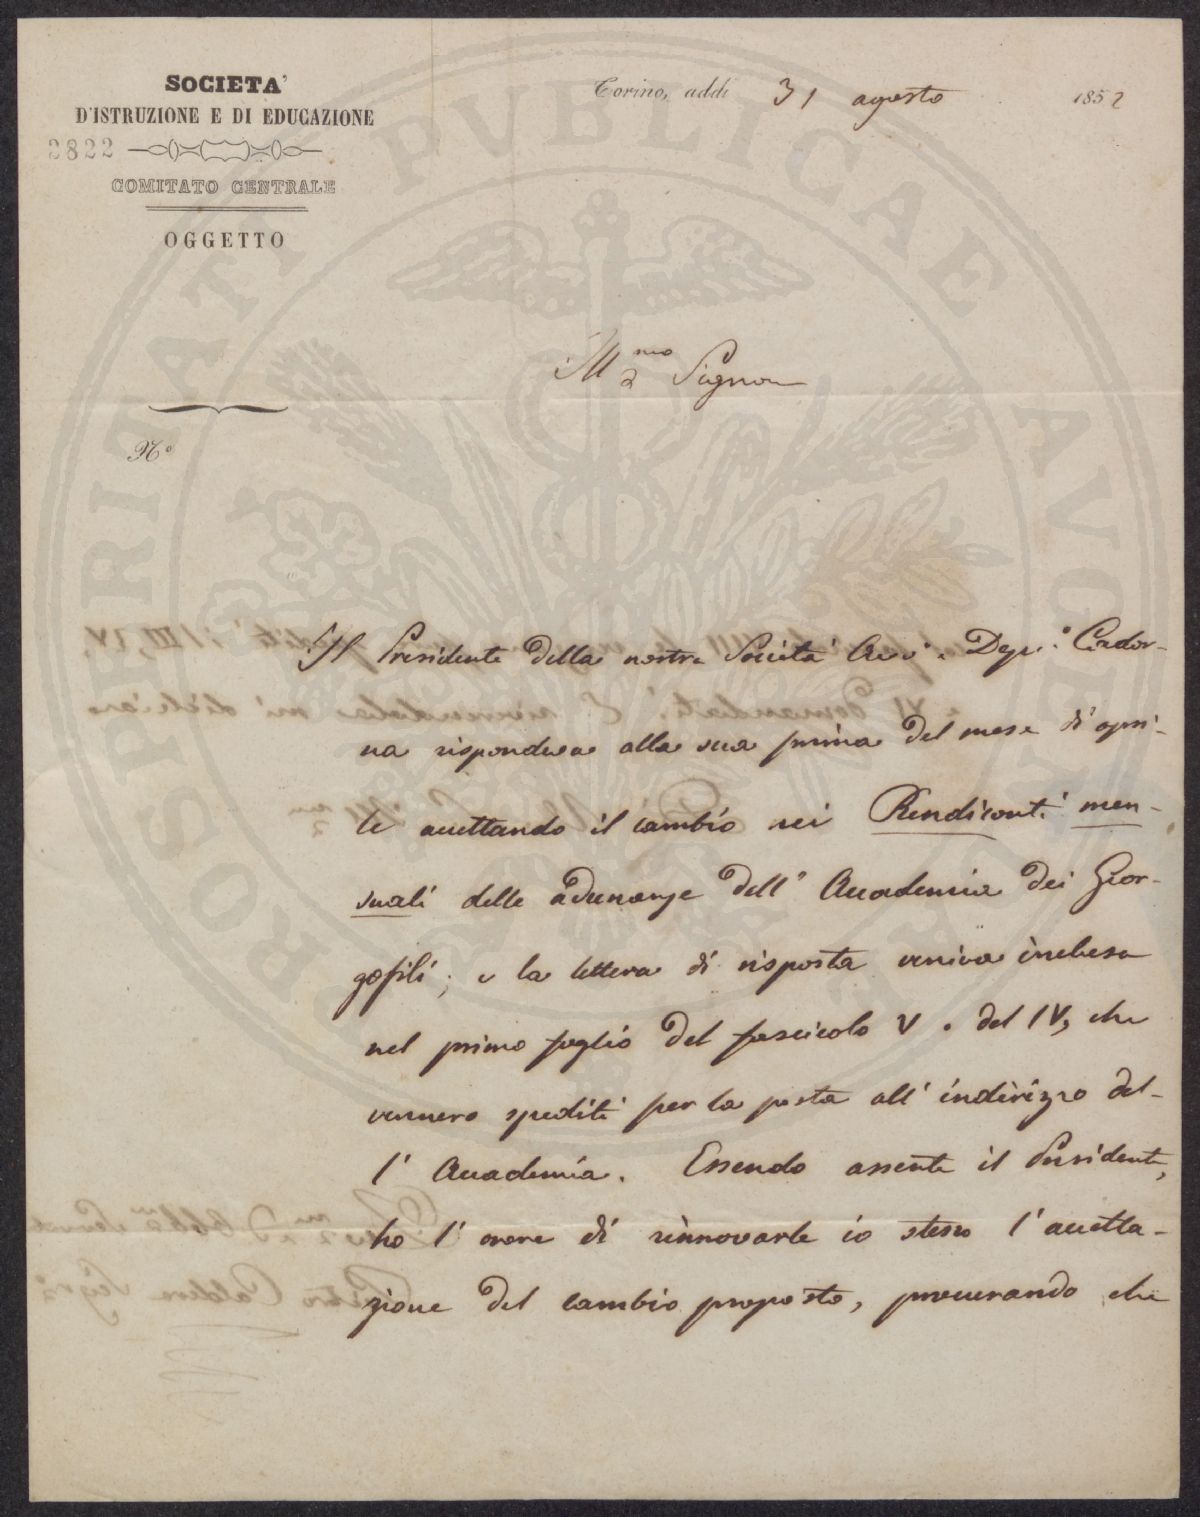 SOCIETA'
D'ISTRUZIONE E DI EDUCAZIONE
2822
COMITATO CENTRALE
OGGETTO
Torino, addì 31 agosto 1852
Ill.mo Signore
N.o
Il Presidente della nostra Società Avv. e Dep. Cador-
na rispondeva alla sua prima del mese di apri-
le accettando il cambio nei Rendiconti men-
suali delle adunanze dell' Accademia dei Geor-
gofili; e la lettera di risposta veniva inchiusa
nel primo foglio del fascicolo V. del IV, che
vennero spediti per la posta all' indirizzo del-
l' Accademia. Essendo assente il Presidente,
ho l' onore di rinnovarle io stesso l' accetta-
zione del cambio proposto, procurando che
PROSPERITATI PVBLICAE AVGENDAE